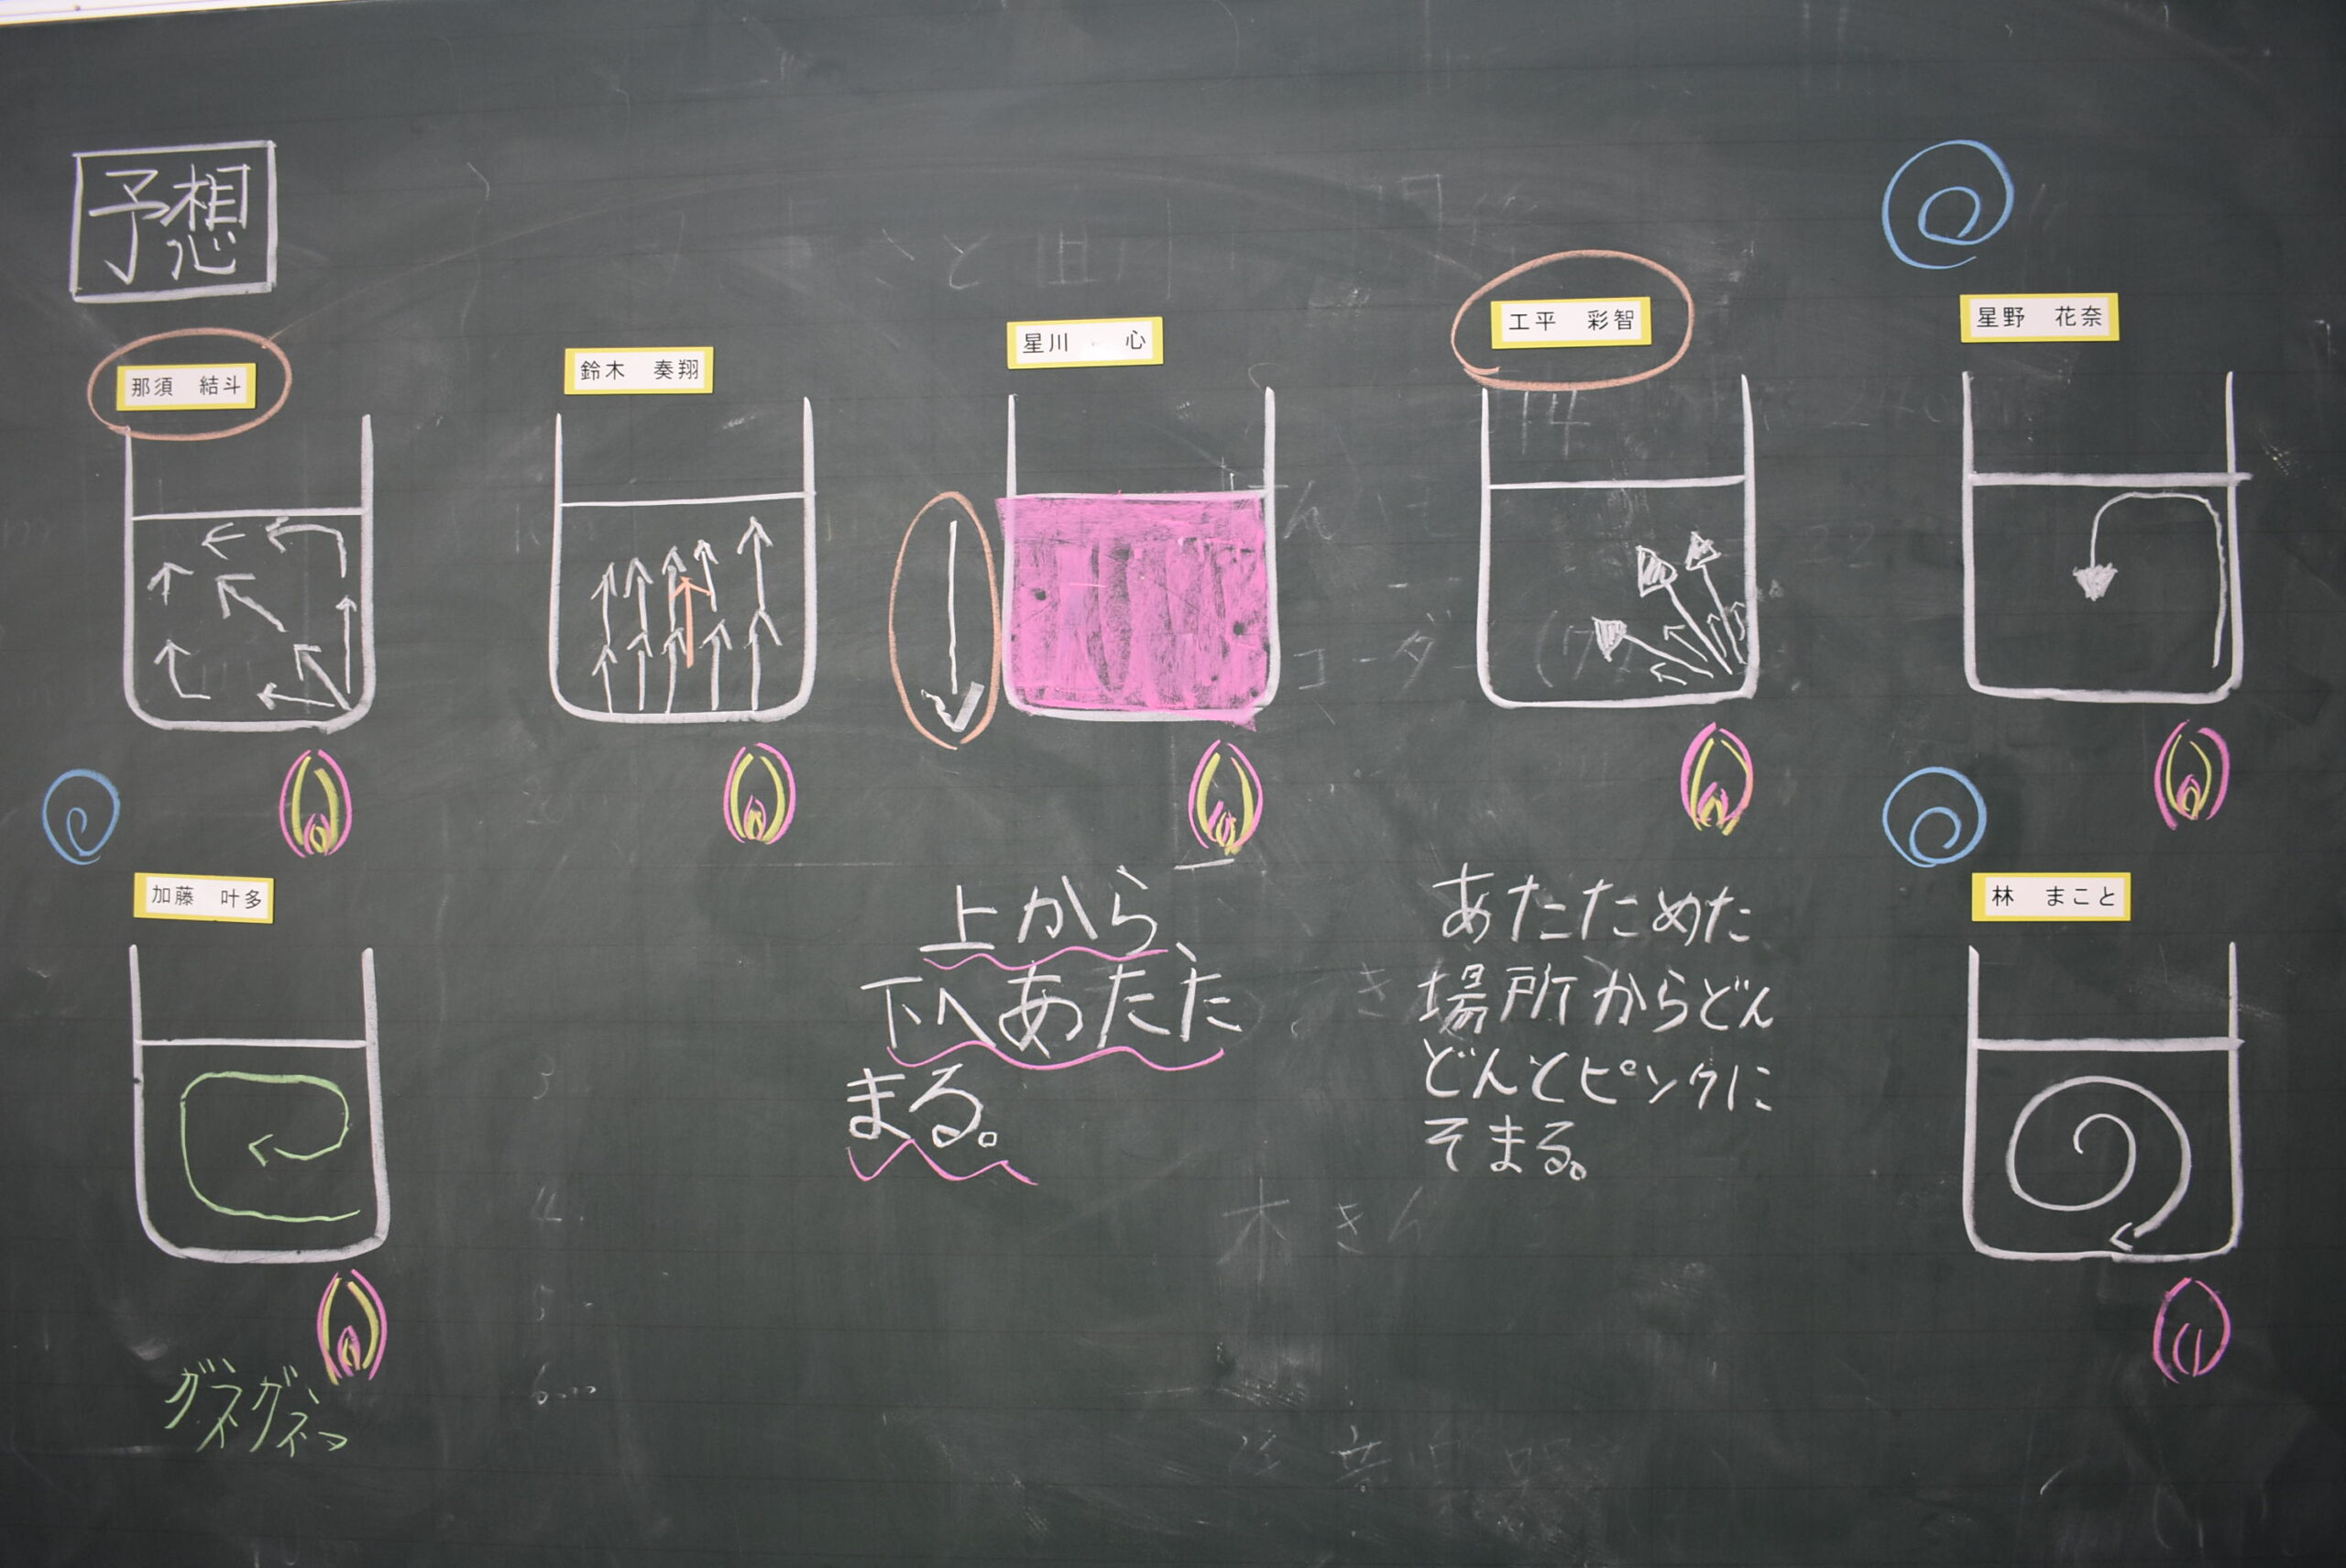 予想
那須 結斗
鈴木 奏翔
星川 心
工平 彩智
星野 花奈
加藤 叶多
林 まこと
上から、
下へあたた
まる。
あたためた
場所からどん
どんとピンクに
そまる。